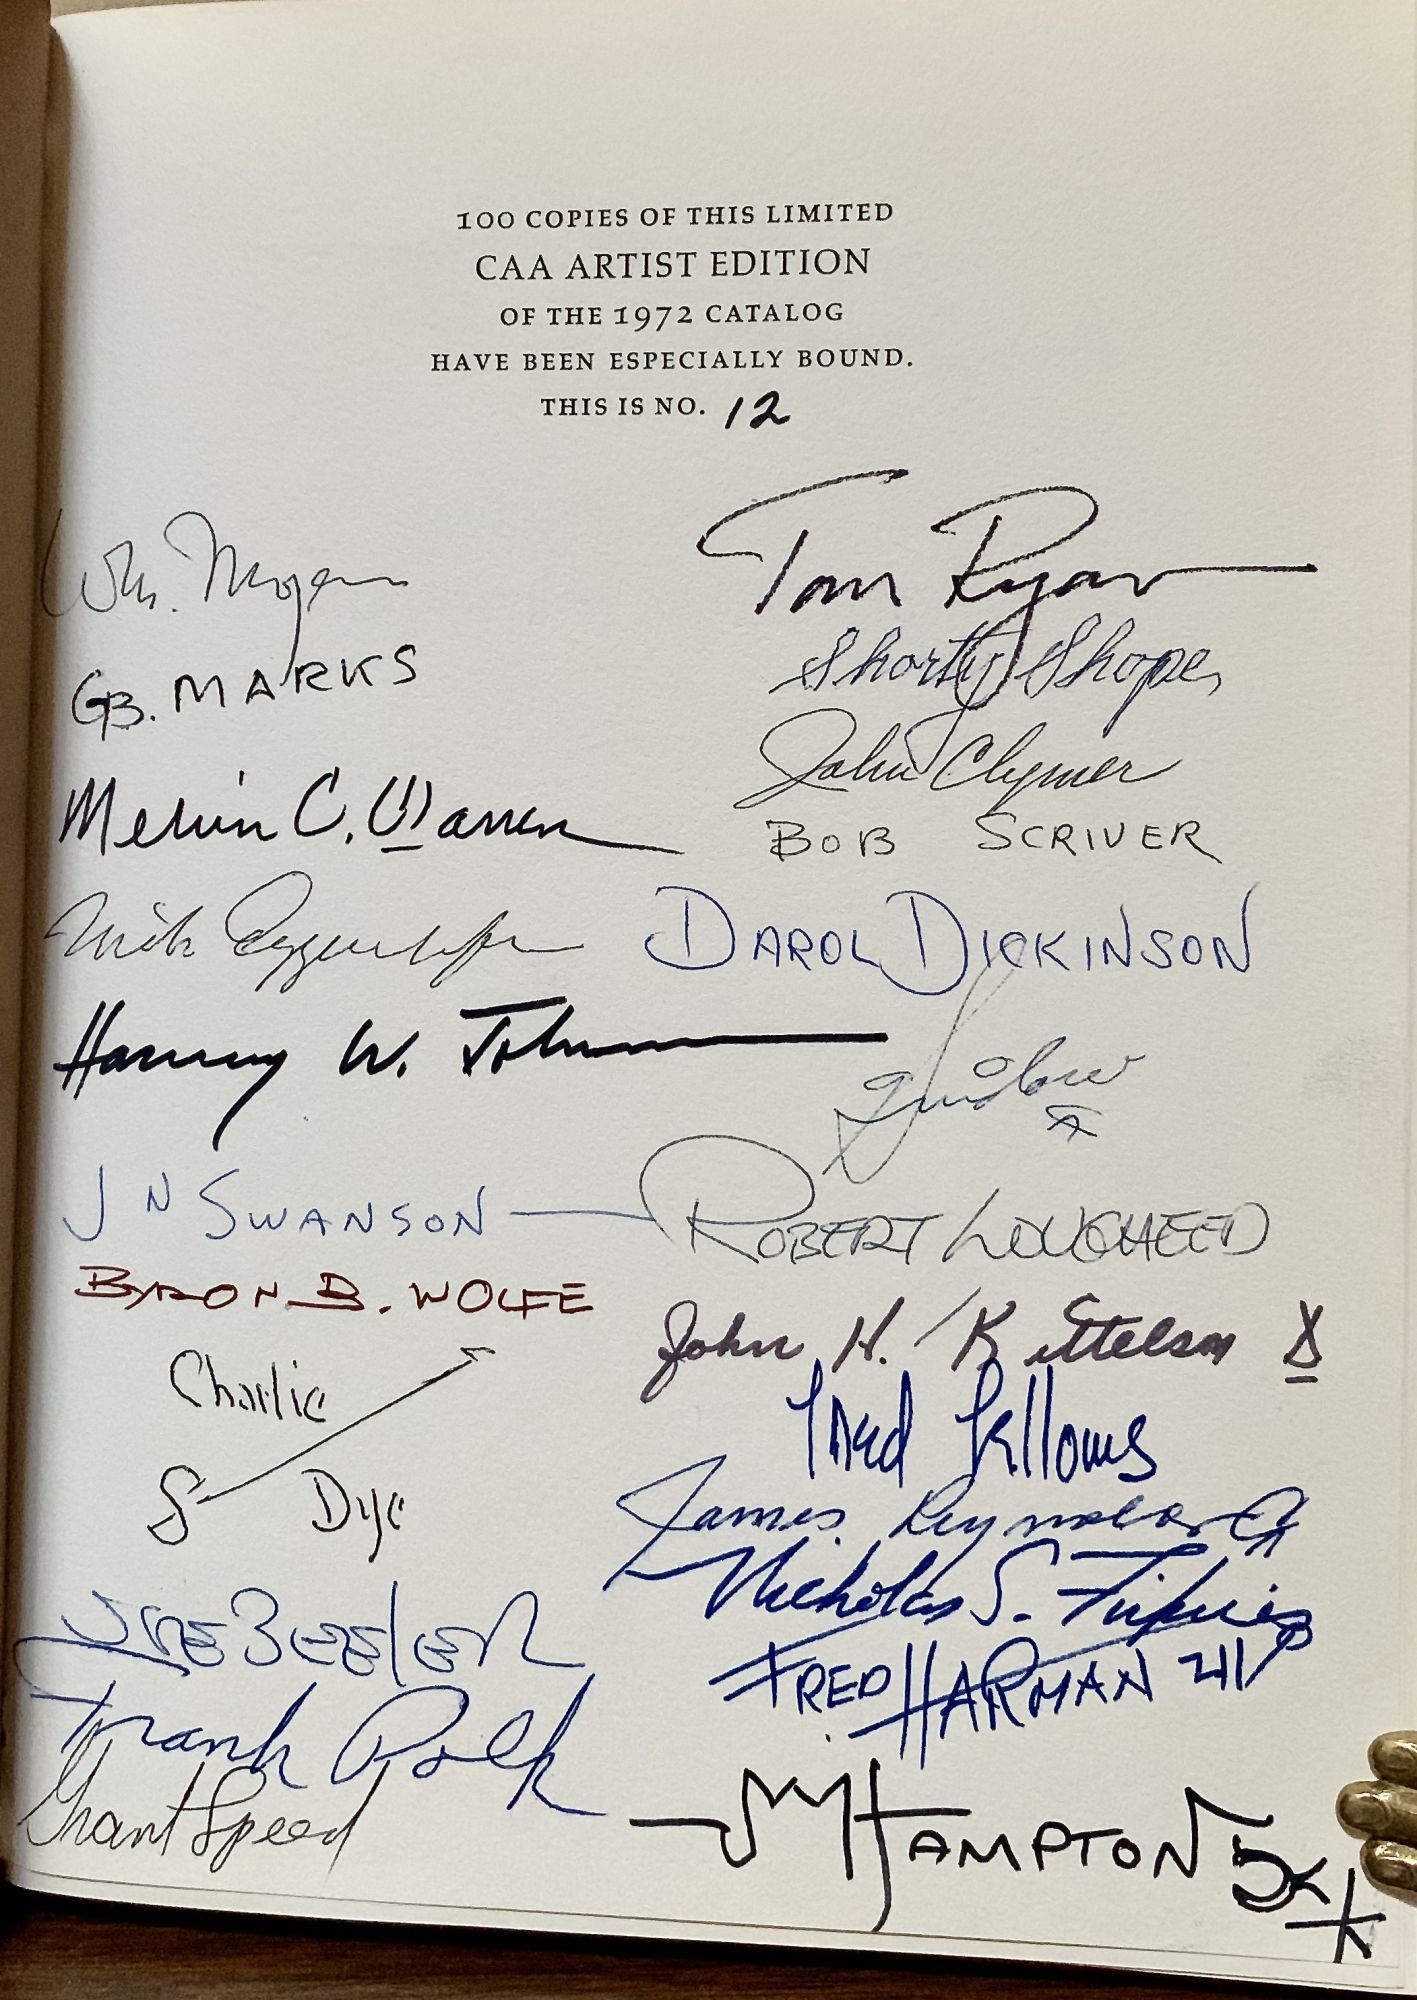 100 COPIES OF THIS LIMITED
CAA ARTIST EDITION
OF THE 1972 CATALOG
HAVE BEEN ESPECIALLY BOUND.
THIS IS NO. 12
Wm. Moyers
GB. MARKS
Melvin C. Warren
Nick Eggenhofer
Harvey W. Johnson
J N SWANSON
BYRON B. WOLFE
Charlie
Dye
JOE BEELER
Frank Polk
Grant Speed
Tom Ryan
Shorty Shope
John Clymer
BOB SCRIVER
DAROL DICKINSON
ROBERT LOUGHEED
John H. Kittelson
Fred Fellows
James Reynolds CA
Nicholas S. Firfires
FRED HARMAN
HAMPTON